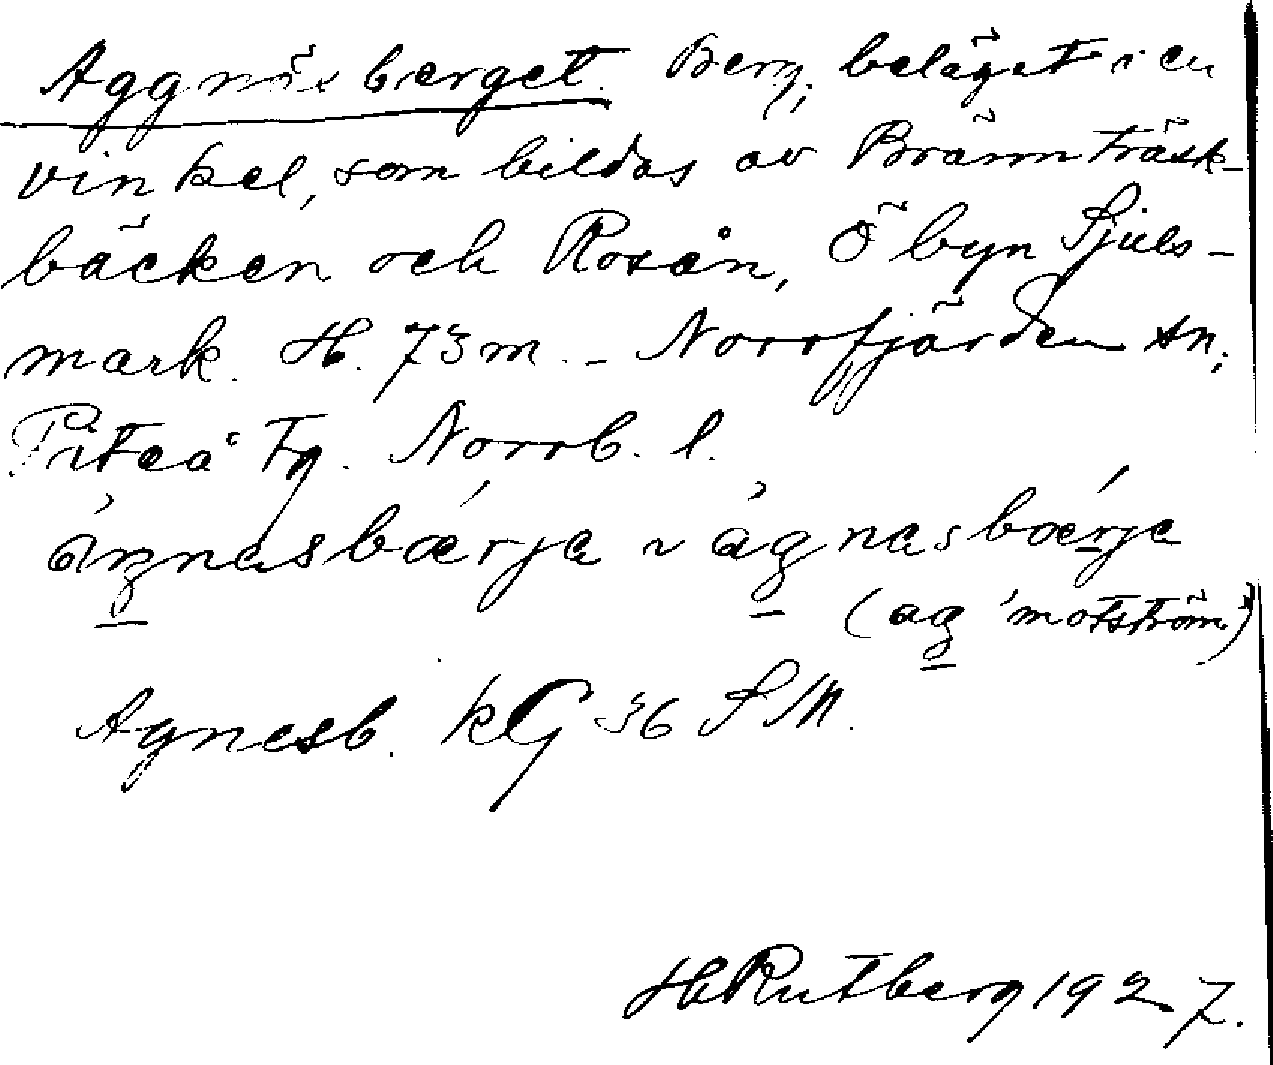 Aggnäsberget. Berg, beläget i en
vinkel, som bildas av Brännträsk-
bäcken och Rosån, Ö byn Sjuls-
mark. H. 73 m. - Norrfjärden sn,
Piteå tg. Norrb. l.
ágnasbærja ~ ágnasbærja
(ag 'motström')
Agnesb. kG 36 SM.
HRutberg 1927.